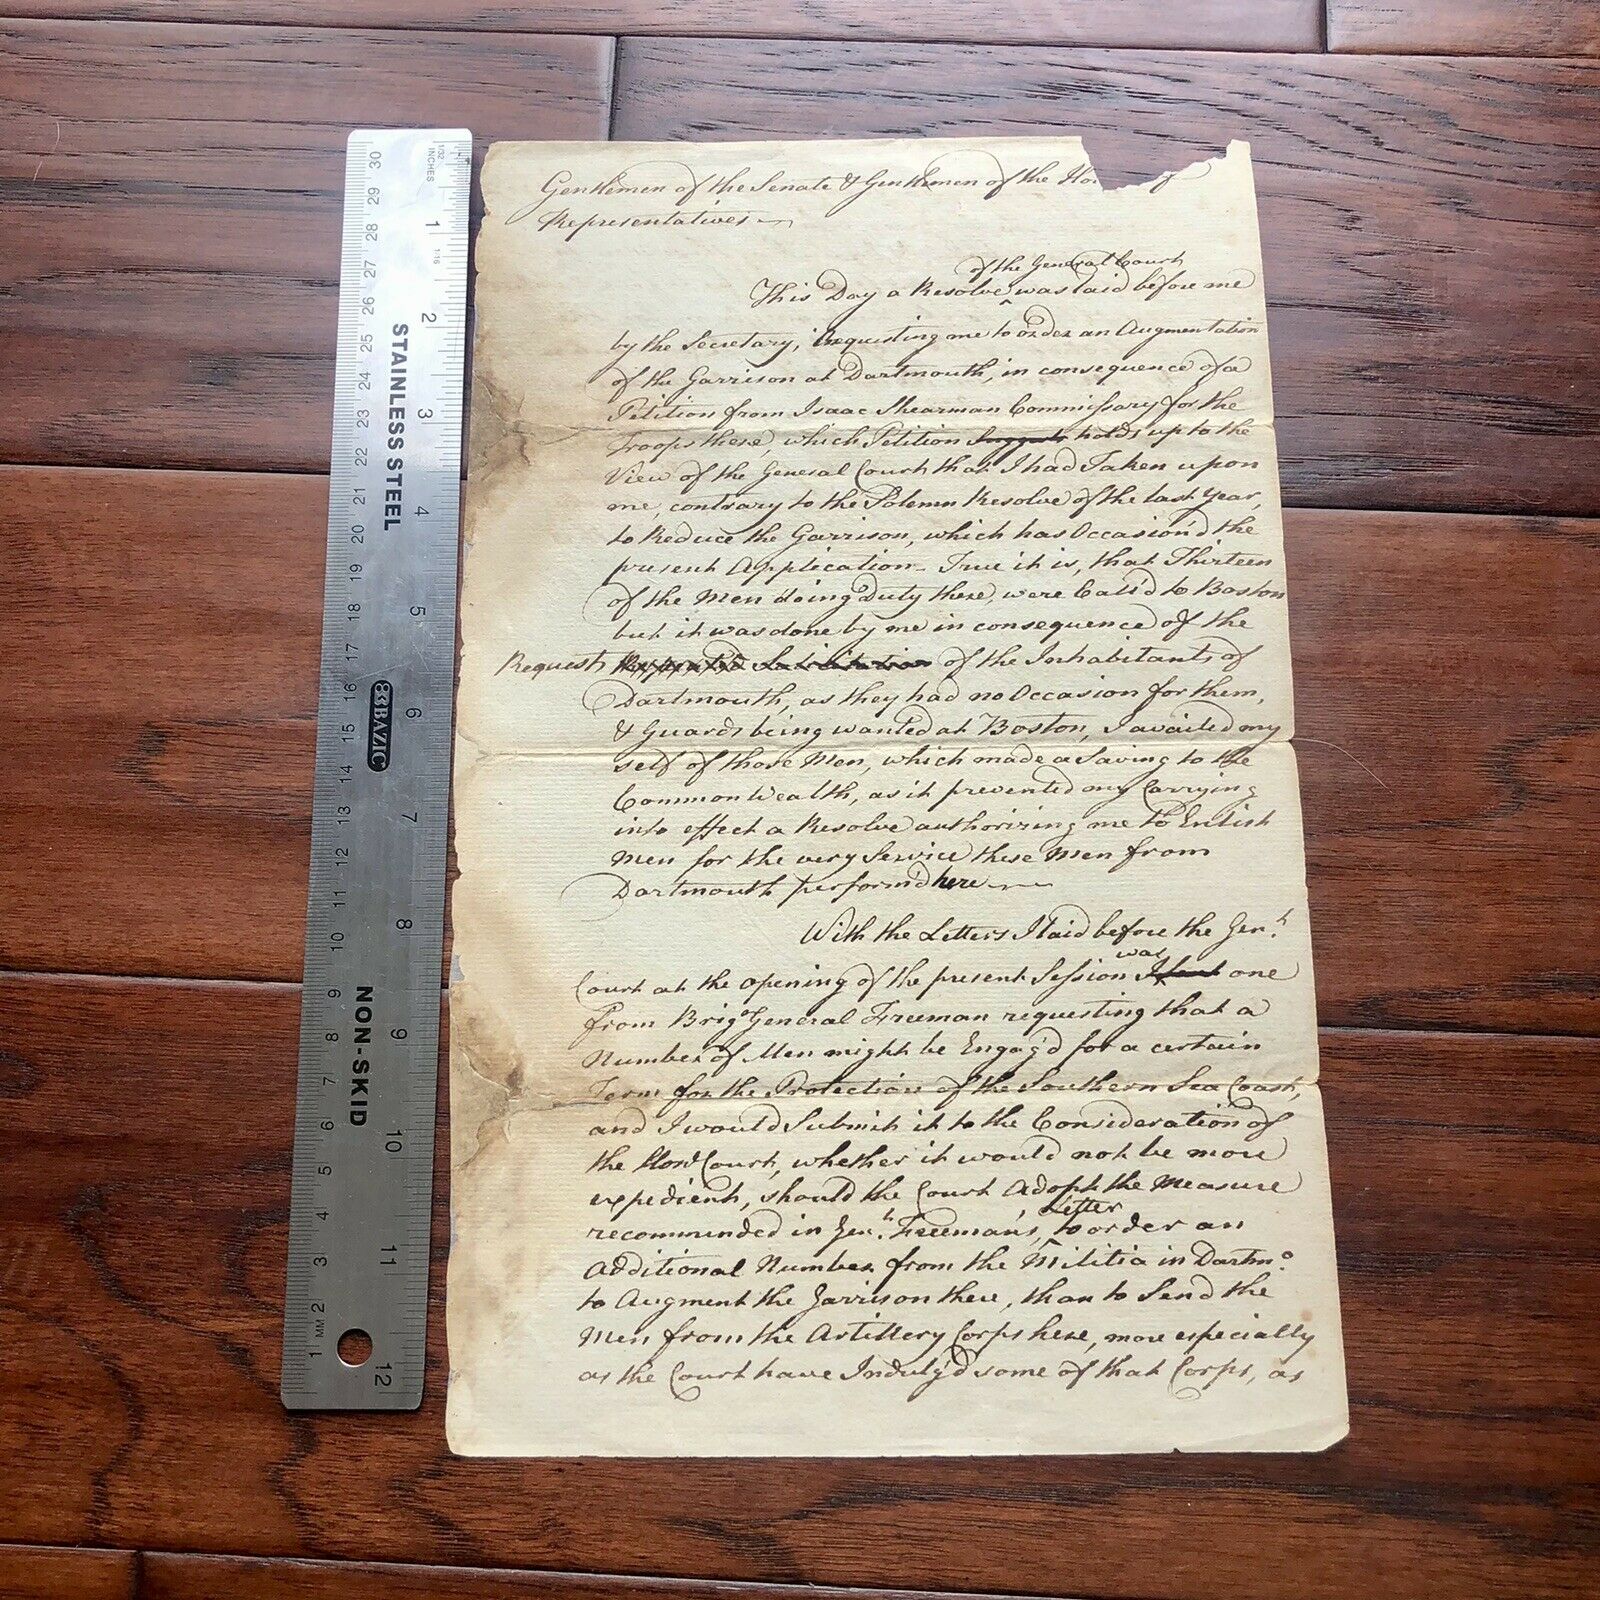 Gentlemen of the Senate & Gentlemen of the Ho of
Representatives
of the General Court
This Day a Resolve ^ was laid before me
by the Secretary, Requesting me to order an Augmentation
of the Garrison at Dartmouth, in consequence of a
Petition from Isaac Shearman Commissary for the
Troops there, which Petition holds up to the
View of the General Court that I had Taken upon
me, contrary to the Solemn Resolve of the last year,
to Reduce the Garrison, which has Occasion'd the
present Application – True it is, that Thirteen
of the Men doing Duty there, were Call'd to Boston
but it was done by me in consequence of the
Request of the Inhabitants of
Dartmouth, as they had no Occasion for them,
& Guards being wanted at Boston, I availed my
self of those Men, which made a Saving to the
Common Wealth, as it prevented my Carrying
into effect a Resolve authorizing me to Enlist
Men for the very Service these Men from
Dartmouth perform'd here
With the Letters I laid before the Genl.
was
Court at the opening of the present Session one
from Brigr. General Freeman requesting that a
Number of Men might be Engag'd for a certain
Term for the Protection of the Southern Sea Coast,
and I would Submit it to the Consideration of
the Hond. Court, whether it would not be more
expedient, should the Court Adopt the Measure
Letter
recommended in Genl. Freeman's, ^ to order an
Additional Number from the Militia in Dartmo.
to Augment the Garrison there, than to Send the
Men from the Artillery Corps here, more especially
as the Court have Indulg'd some of that Corps, as
1/32
INCHES
1:16
1
2
3
4
5
6
7
8
9
10
11
12
STAINLESS STEEL
BAZIC
NON-SKID
30
29
28
27
26
25
24
23
22
21
20
19
18
17
16
15
14
13
12
11
10
9
8
7
6
5
4
3
MM 2
1